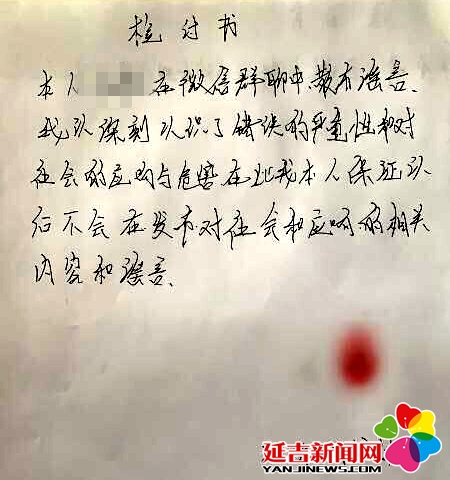 检讨书
本人 在微信群聊中散布谣言、
我以深刻认识了错误的严重性和对
社会的应响与危害在此我本人保证以
后不会在发布对社会和应响的相关
内容和谣言、
延吉新闻网
YANJINEWS.COM